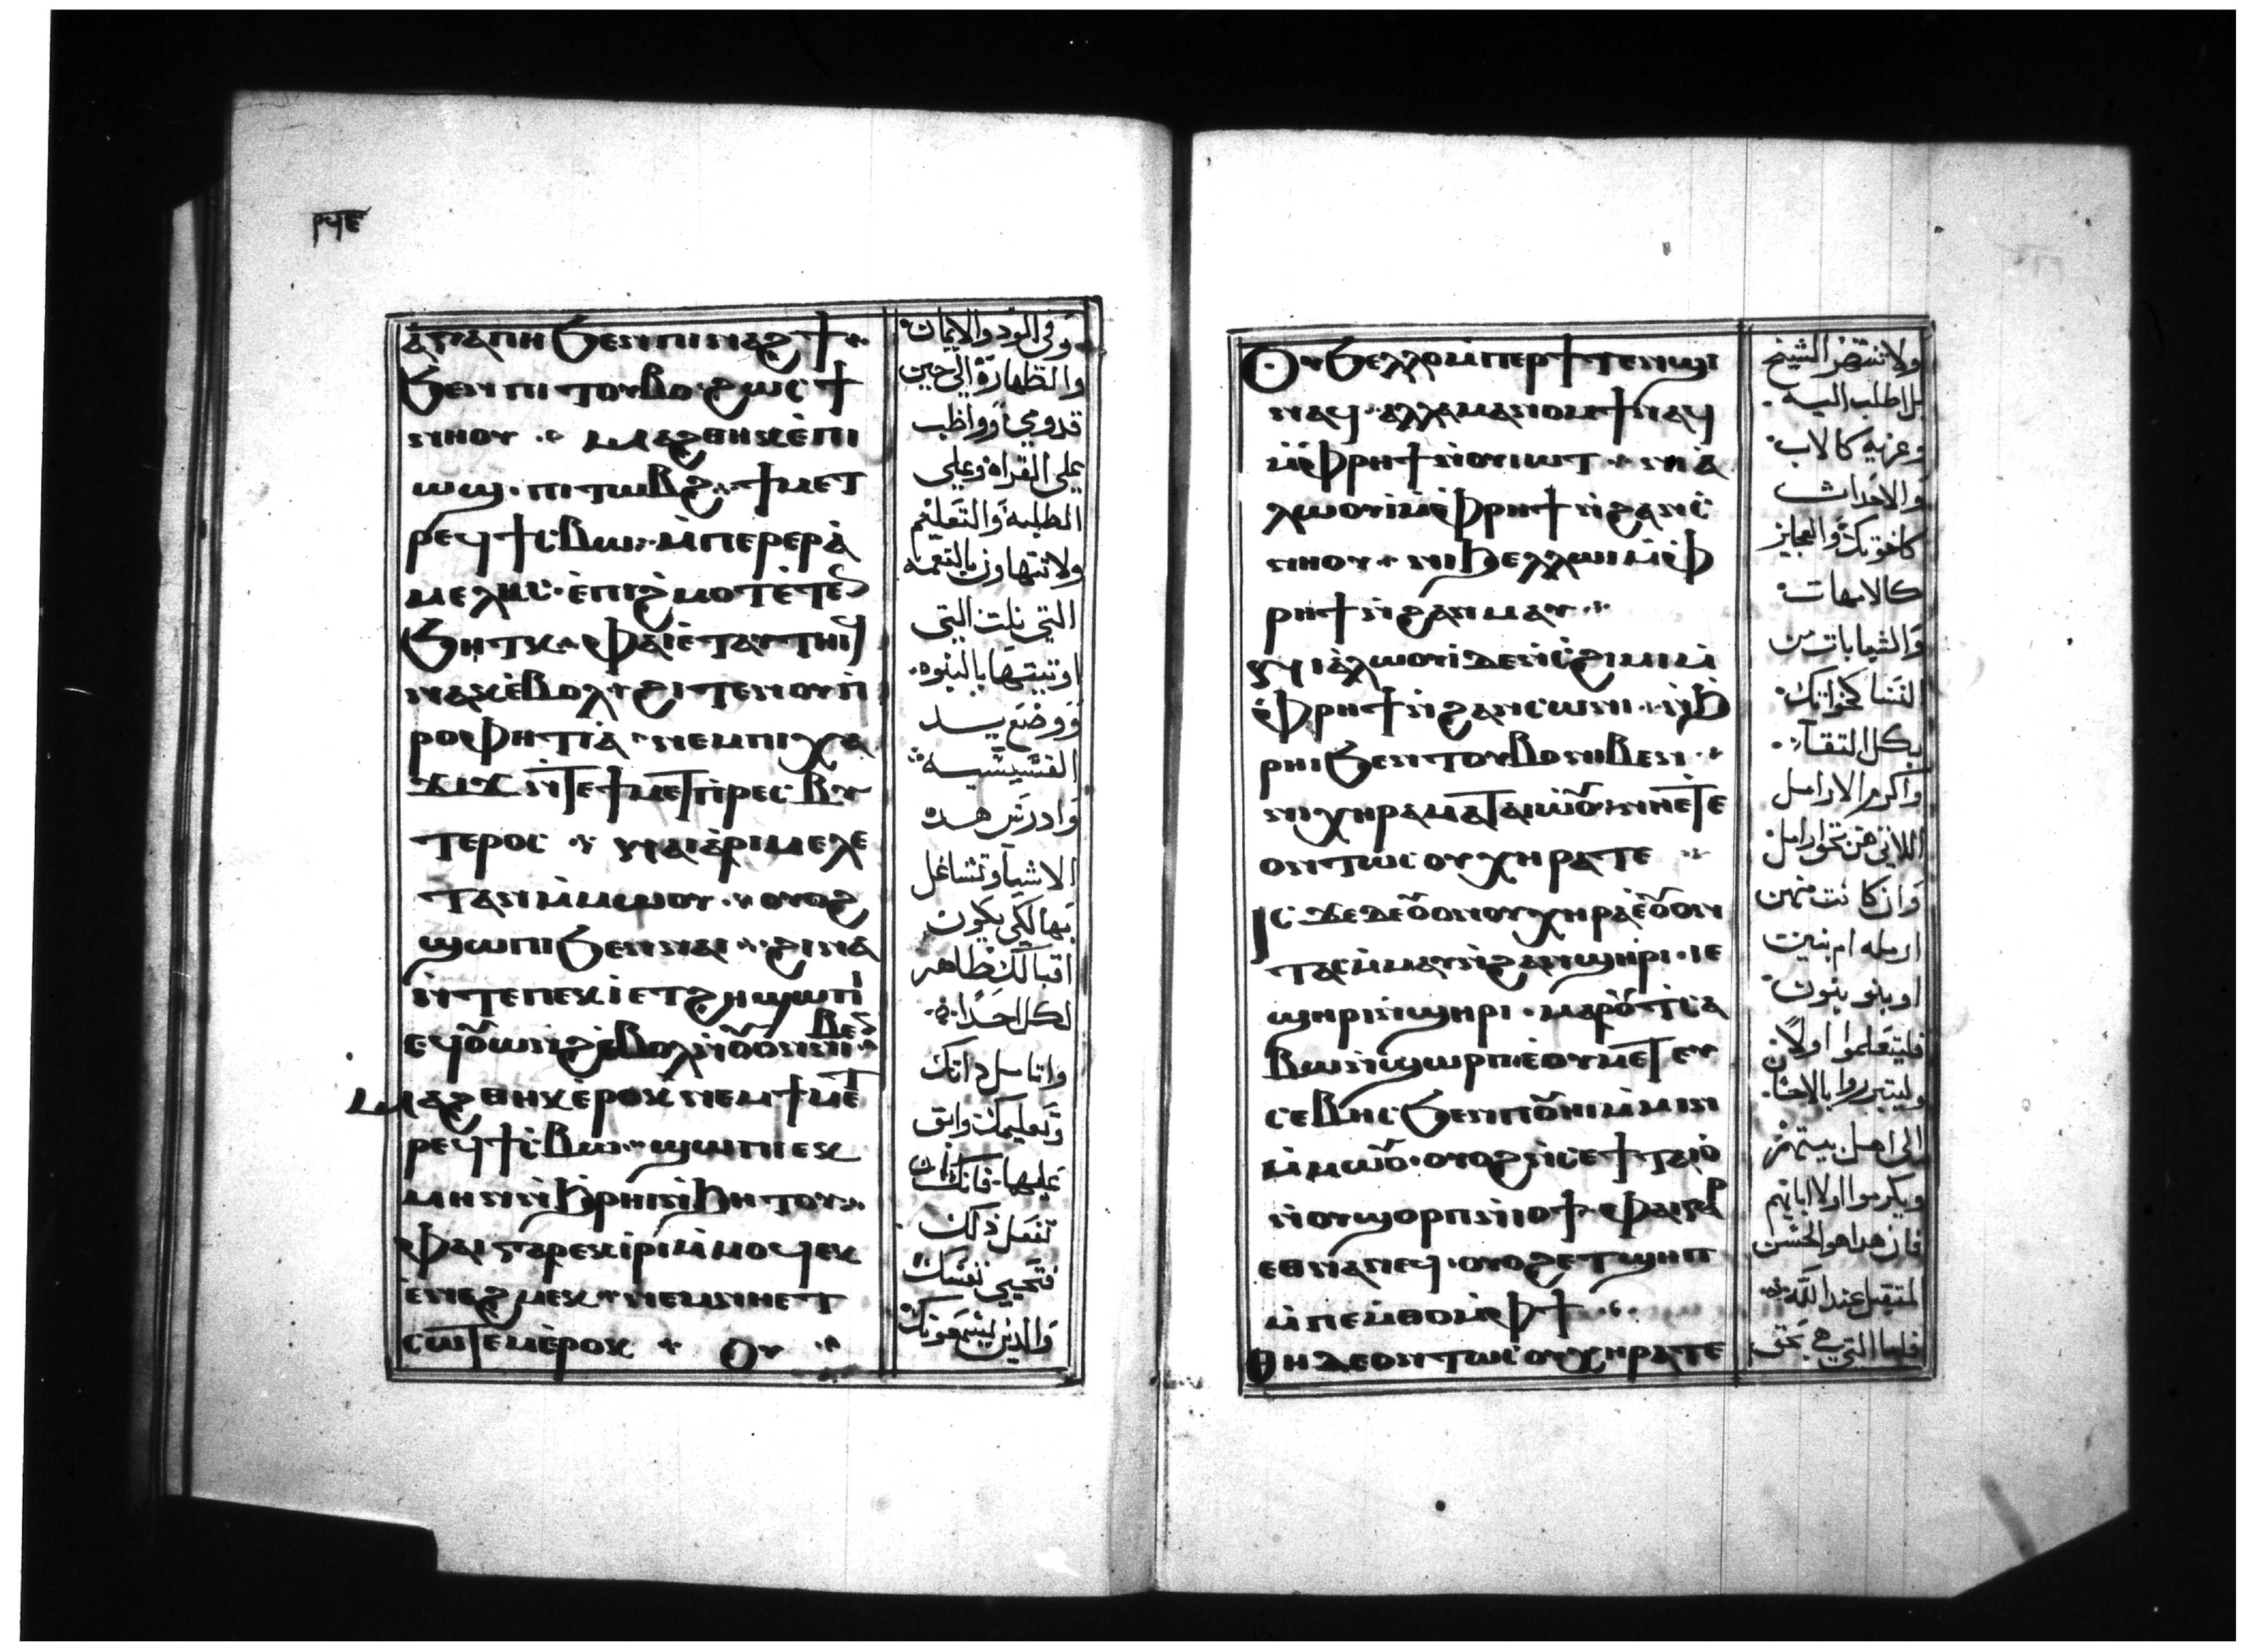 ⲣϥⲉ
ⲁ̀ⲅⲁⲡⲏ ϧⲉⲛⲡⲓⲛⲁϩϯ ⁘
ϧⲉⲛⲡⲓⲧⲟⲩⲃⲟ · ϩⲱⲥ ϯ
ⲛⲏⲟⲩ ⁘ ⲙⲁϩⲑⲏⲕ ⲉ̀ⲡⲓ
ⲱϣ · ⲡⲓⲧⲱⲃϩ ⁘ ϯⲙⲉⲧ
ⲣⲉϥϯⲥ̀ⲃⲱ ⁘ ⲙ̀ⲡⲉⲣⲉⲣⲁ̀
ⲙⲉⲗⲏⲥ · ⲉ̀ⲡⲓϩ̀ⲙⲟⲧ ⲉ̀ⲧⲉⲛ̄
ϧⲏⲧⲕ ⁘ ⲫⲁⲓ ⲉ̀ⲧⲁⲩⲧⲏⲓϥ
ⲛⲁⲕ ⲉ̀ⲃⲟⲗ ϩⲓⲧⲉⲛ ⲟⲩⲡ̀
ⲣⲟⲫⲏⲧⲓⲁ̀ · ⲛⲉⲙⲡⲓⲭⲁ
ϫⲓϫ ⲛ̀ⲧⲉϯⲙⲉⲧⲡ̀ⲣⲉⲥⲃⲩ
ⲧⲉⲣⲟⲥ ⁘ ⲛⲁⲓ ⲁ̀ⲣⲓⲙⲉⲗⲉ
ⲧⲁⲛ ⲙ̀ⲙⲱⲟⲩ ⁘ ⲟⲩⲟϩ
ϣⲱⲡⲓ ϧⲉⲛⲛⲁⲓ ⁘ ϩⲓⲛⲁ
ⲛ̀ⲧⲉⲡⲉⲕϫⲓ ⲉⲧϩⲏ ϣⲱⲡⲓ
ⲉϥⲟⲩⲱⲛϩ ⲉ̀ⲃⲟⲗ ⲛ̀ⲟⲩⲟⲛ ⲛⲓⲃⲉⲛ̄ ⁘
ⲙⲁϩⲑⲏⲕ ⲉ̀ⲣⲟⲕ ⲛⲉⲙϯⲙⲉⲧ
ⲣⲉϥϯⲥ̀ⲃⲱ ⁘ ϣⲱⲡⲓ ⲉⲕ
ⲙⲏⲛ ⲛ̀ϧ̀ⲣⲏⲓ ⲛ̀ϧⲏⲧⲟⲩ ⁘
ⲫⲁⲓ ⲅⲁⲣ ⲉⲕⲓ̀ⲣⲓ ⲙ̀ⲙⲟϥ ⲉⲕ
ⲉ̀ⲛⲉϩⲙⲉⲕ ⁘ ⲛⲉⲙⲛⲏⲉⲧ
ⲥⲱⲧⲉⲙ ⲉ̀ⲣⲟⲕ ⁘ ⲟⲩ ⁘
وفي الود والايمان
والطهارة الى حين
قدومي وواظب
على القراة وعلى
الطلبه والتعليم
ولا تتهاون بالنعمه
التي نلت التي
اوتيتها بالنبوه
ووضع يد
القسيسيه
وادرس هده
الاشيا وتشاغل
بها لكي يكون
اقبالك ظاهر
لكل احدا
واتامل داتك
وتعليمك واتق
عليها فانك ان
تفعل ذلك
فتحيي نفسك
والدين يسمعونك
ⲟⲩϧⲉⲗⲗⲟ ⲙ̀ⲡⲉⲣϯⲧⲉⲛϣⲓ
ⲛⲁϥ · ⲁⲗⲗⲁ ⲙⲁⲛⲟⲙϯ ⲛⲁϥ
ⲙ̀ⲫ̀ⲣⲏϯ ⲛ̀ⲟⲩⲓⲱⲧ ⁘ ⲛⲓⲁ̀
ⲗⲱⲟⲩⲓ ⲙ̀ⲫ̀ⲣⲏϯ ⲛ̀ϩⲁⲛⲥ̀
ⲛⲏⲟⲩ ⁘ ⲛⲓϧⲉⲗⲗⲱⲓ ⲙ̀ⲫ̀
ⲣⲏϯ ⲛ̀ϩⲁⲛⲙⲁⲩ ⁘
ⲛⲓⲁ̀ⲗⲱⲟⲩⲓ ⲇⲉ ⲛ̀ⲥ̀ϩⲓⲙⲓ ⲙ̀
ⲫ̀ⲣⲏϯ ⲛ̀ϩⲁⲛⲥⲱⲛⲓ ⁘ ⲛ̀ϧ̀
ⲣⲏⲓ ϧⲉⲛⲧⲟⲩⲃⲟ ⲛⲓⲃⲉⲛ ⁘
ⲛⲓⲭⲏⲣⲁ ⲙⲁⲧⲁⲓⲱⲟⲩ ⲛⲏⲉⲧⲉ
ⲟⲛⲧⲱⲥ ⲟⲩⲭⲏⲣⲁ ⲧⲉ ⁘
ⲓⲥϫⲉ ⲇⲉ ⲟⲩⲟⲛ ⲟⲩⲭⲏⲣⲁ ⲉ̀ⲟⲩⲟⲛ
ⲧⲁⲥ ⲙ̀ⲙⲁⲩ ⲛ̀ϩⲁⲛϣⲏⲣⲓ · ⲓⲉ
ϣⲏⲣⲓ ⲛ̀ϣⲏⲣⲓ · ⲙⲁⲣⲟⲩϭⲓⲥ̀
ⲃⲱ ⲛ̀ϣⲱⲣⲡ ⲉ̀ⲟⲩⲙⲉⲧⲉⲩ
ⲥⲉⲃⲏⲥ ϧⲉⲛⲡⲟⲩⲏⲓ ⲙ̀ⲙⲓⲛ
ⲙ̀ⲙⲱⲟⲩ · ⲟⲩⲟϩ ⲛ̀ⲥⲉϯⲧⲁⲓⲟ̀
ⲛ̀ⲟⲩϣⲟⲣⲡ ⲛ̀ⲓⲟϯ · ⲫⲁⲓ ⲅⲁⲣ
ⲉⲑⲛⲁⲛⲉϥ · ⲟⲩⲟϩ ⲉⲧϣⲏⲡ
ⲙ̀ⲡⲉⲙⲑⲟ ⲙ̀ⲫϯ ⁘
ⲑⲏ ⲇⲉ ⲟⲛⲧⲱⲥ ⲟⲩⲭⲏⲣⲁ ⲧⲉ
ولا تنتهر الشيخ
بل اطلب اليه
وعزيه كالاب
والاحداث
كاخوتك والعجايز
كالامهات
والشابات من
النسا كخواتك
بكل النقآء
واكرم الارامل
اللاتي هن بحق ارامل
وان كانت منهن
ارمله ام بنين
او بنو بنون
فليتعلموا اولاً
وليتبرروا بالاحسان
الى اهل بيتهم
ويكرموا اولا ابايهم
فان هدا هو الحسن
لمتقبل عند الله
فاما التي هي بحق